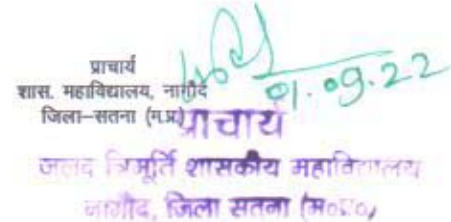 01.09.22
प्राचार्य
शास. महाविद्यालय, नागौद
जिला-सतना (म.प्र.)
प्राचार्य
जलद त्रिमूर्ति शासकीय महाविद्यालय
नागौद, जिला सतना (म०प्र०)